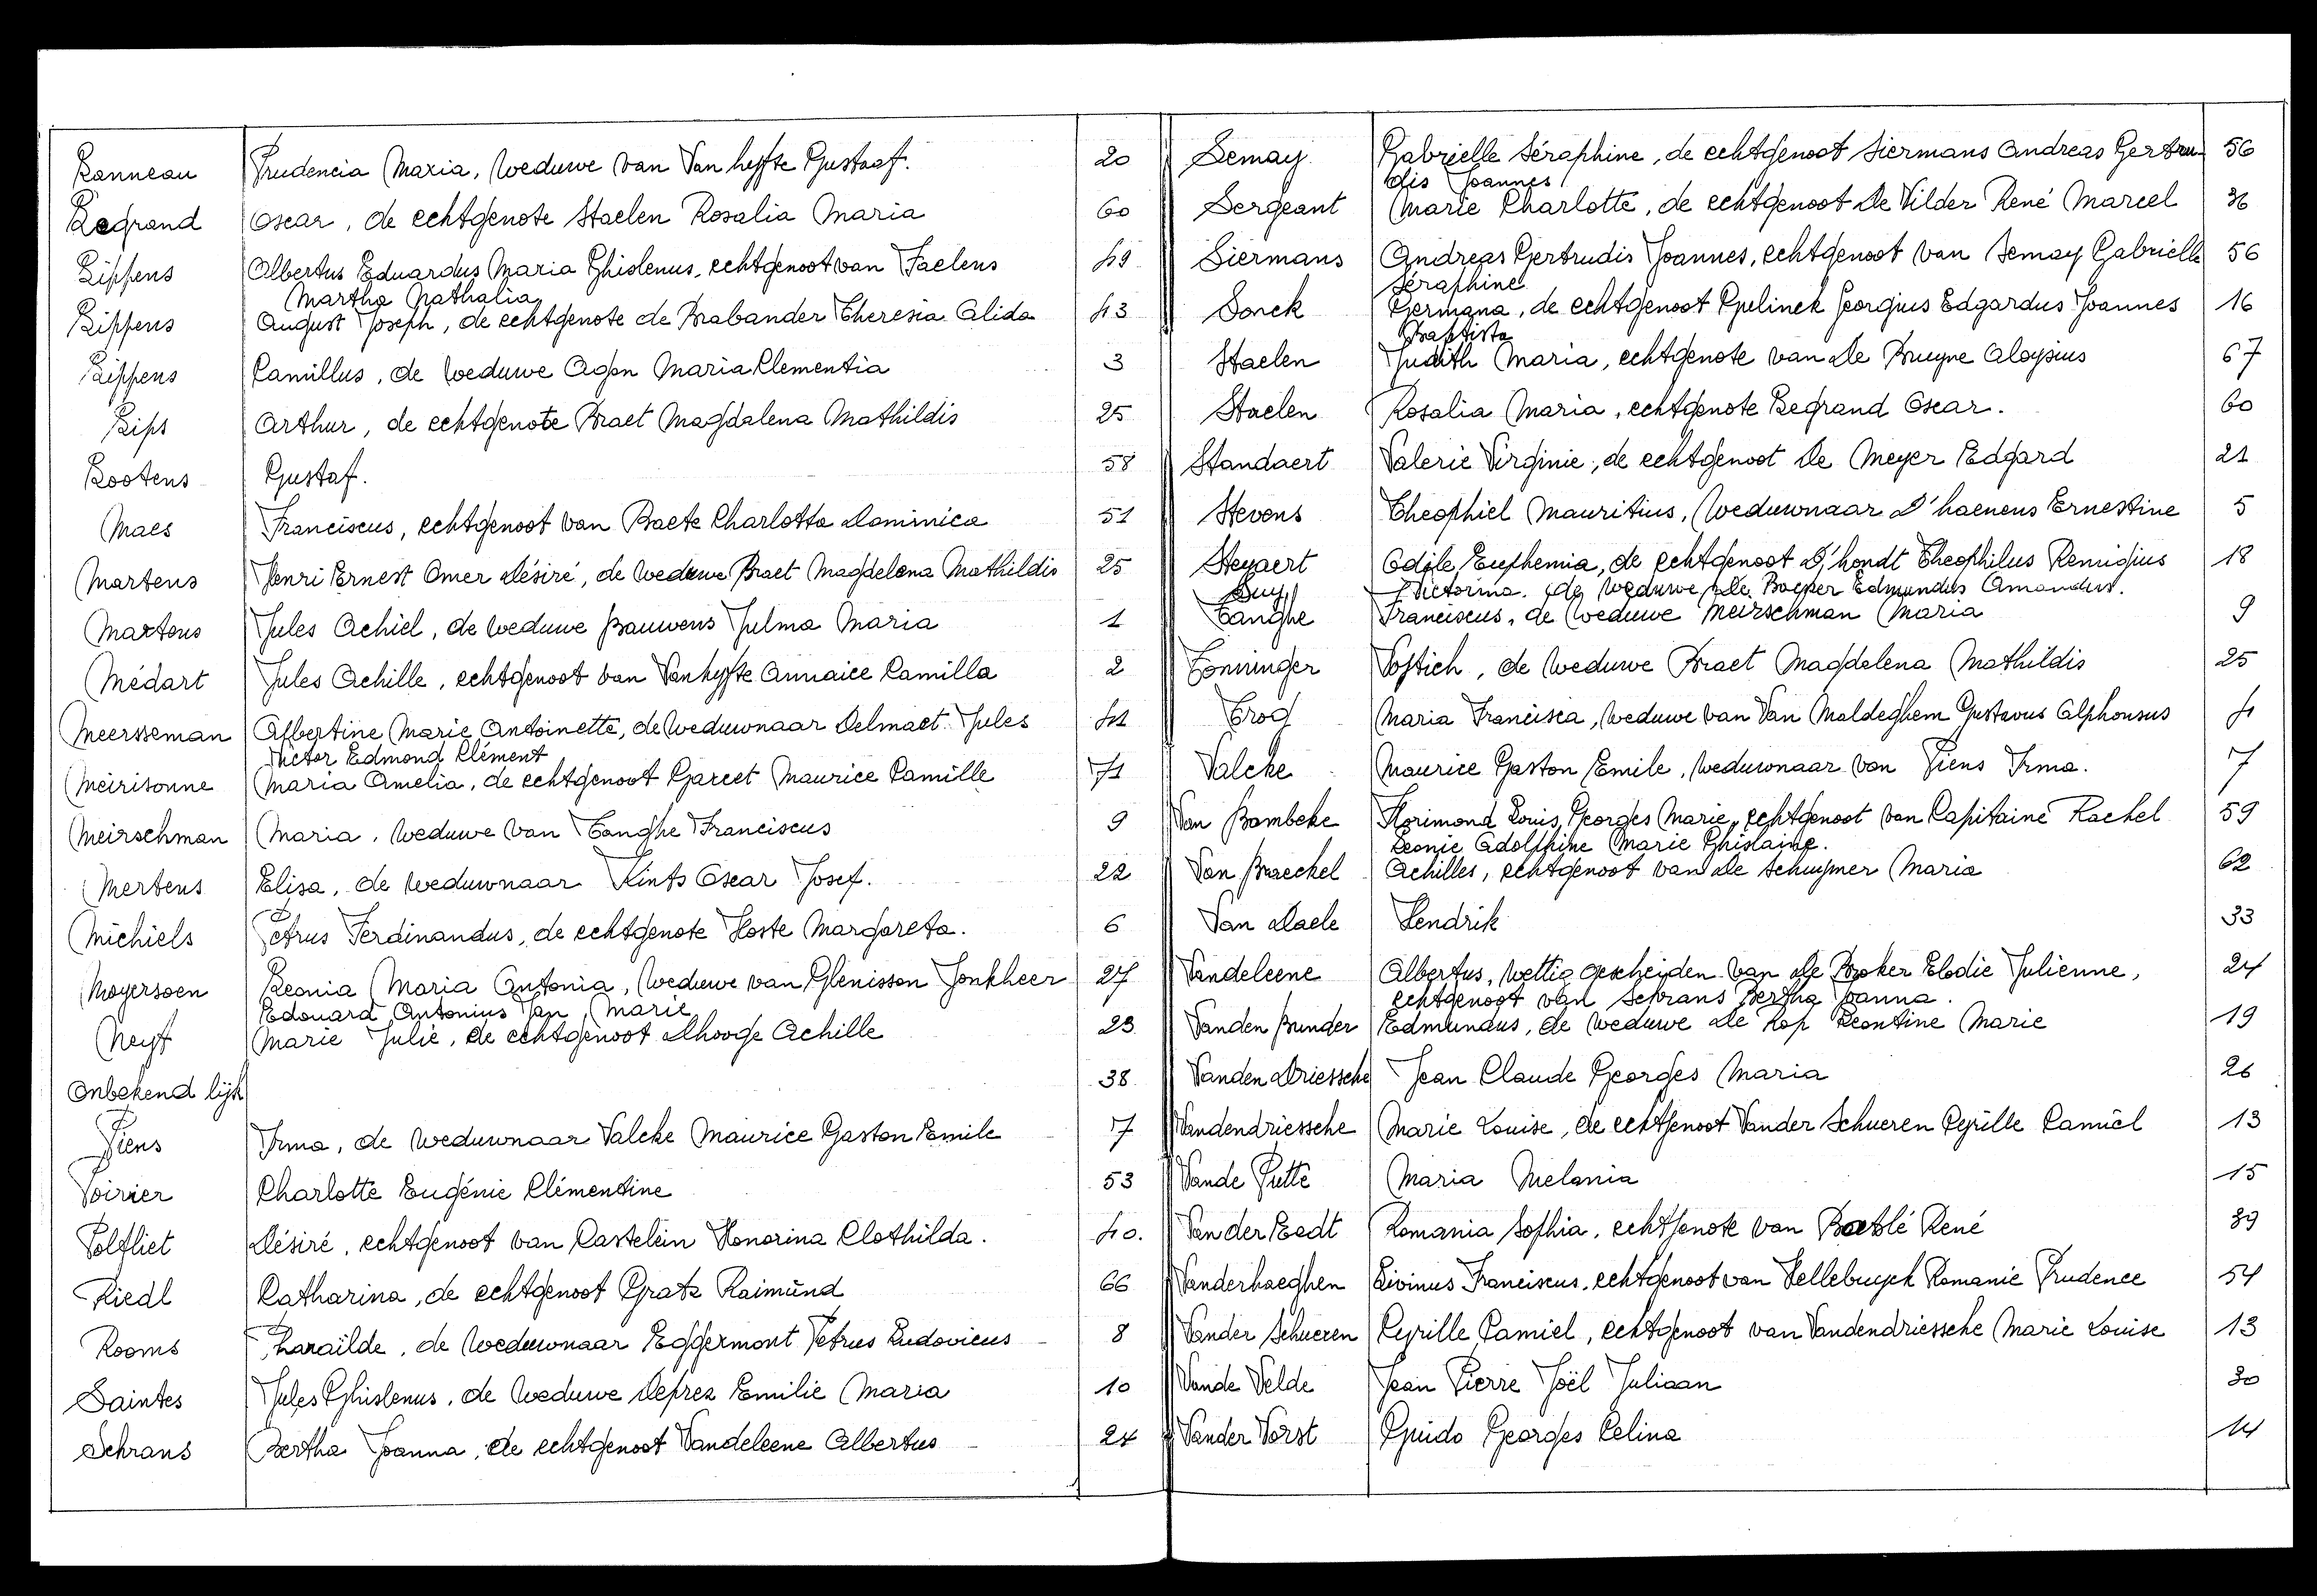 Lanneau Prudencia Maria, weduwe van Van hyfte Gustaaf. 20
Legrand Oscar, de echtgenote Staelen Rosalia Maria 60
Lippens Albertus Eduardus Maria Ghislenus, echtgenoot van Faelens 49
Martha Nathalia
Lippens August Joseph, de echtgenote de Brabander Theresia Alida 43
Lippens Camillus, de weduwe Agon Maria Clementia 3
Lips Arthur, de echtgenote Braet Magdalena Mathildis 25
Lootens Gustaf. 58
Maes Franciscus, echtgenoot van Baete Charlotta Dominica 51
Martens Henri Ernest Omer Désiré, de weduwe Braet Magdelena Mathildis 25
Martens Jules Achiel, de weduwe Bauwens Julma Maria 1
Médart Jules Achille, echtgenoot van Vanhyfte Annaice Camilla 2
Meersseman Albertine Marie Antoinette, de weduwnaar Delmaet Jules 41
Victor Edmond Clément
Meirisonne Maria Amelia, de echtgenoot Garcet Maurice Camille 71
Meirschman Maria, weduwe van Tanghe Franciscus 9
Mertens Elisa, de weduwnaar Kints Oscar Josef. 22
Michiels Petrus Ferdinandus, de echtgenote Hoste Margareta. 6
Moyersoen Leonia Maria Antonia, weduwe van Glenisson Jonkheer 27
Edouard Antonius Jan Marie
Neyt Marie Julie, de echtgenoot Dhooge Achille 23
Onbekend lijk 38
Piens Irma, de weduwnaar Valcke Maurice Gaston Emile 7
Poirier Charlotte Eugénie Clémentine 53
Polfliet Désiré, echtgenoot van Castelein Honorina Clothilda. 40.
Riedl Katharina, de echtgenoot Gratz Raimund 66
Rooms Pharaïlde, de weduwnaar Eggermont Petrus Ludovicus 8
Saintes Jules Ghislenus, de weduwe Deprez Emilie Maria 10
Schrans Bertha Joanna, de echtgenoot Vandeleene Albertus 24
Semay Gabrielle Séraphine, de echtgenoot Siermans Andreas Gertru 56
dis Joannes
Sergeant Marie Charlotte, de echtgenoot De Vilder René Marcel 36
Siermans Andreas Gertrudis Joannes, echtgenoot van Semay Gabrielle 56
Séraphine
Sonck Germana, de echtgenoot Gyelinck Georgius Edgardus Joannes 16
Baptista
Staelen Judith Maria, echtgenote van De Bruyne Aloysius 67
Staelen Rosalia Maria, echtgenote Legrand Oscar. 60
Standaert Valerie Virginie, de echtgenoot De Meyer Edgard 21
Stevens Theophiel Mauritius, weduwnaar D'haenens Ernestine 5
Steyaert Odile Euphemia, de echtgenoot D'hondt Theophilus Remigius 18
Suy Victorina. de weduwe De Baeper Edmundus Amandus.
Tanghe Franciscus, de weduwe Meirschman Maria 9
Tonninger Vojtich, de weduwe Braet Magdelena Mathildis 25
Troq Maria Francisca, weduwe van Van Maldeghem Gustavus Alphonsus 4
Valcke Maurice Gaston Emile, weduwnaar van Piens Irma. 7
Van Bambeke Florimond Louis Georges Marie, echtgenoot van Capitaine Rachel 59
Leonie Adolphine Marie Ghislaine.
Van Braeckel Achilles, echtgenoot van De Schuymer Maria 62
Van Daele Hendrik 33
Vandeleene Albertus, wettig gescheiden van De Boker Elodie Julienne, 24
echtgenoot van Schrans Bertha Joanna.
Vanden Bunder Edmundus, de weduwe De Kop Leontine Marie 19
Vanden Driessche Jean Claude Georges Maria 26
Vandendriessche Marie Louise, de echtgenoot Vander Schueren Cyrille Camiel 13
Vande Putte Maria Melania 15
Van der Eedt Romania Sophia, echtgenote van Baeblé René 39
Vanderhaeghen Livinus Franciscus, echtgenoot van Hellebuyck Romanie Prudence 54
Vander Schueren Cyrille Camiel, echtgenoot van Vandendriessche Marie Louise 13
Vande Velde Jean Pierre Joël Juliaan 30
Vander Vorst Guido Georges Celina 14